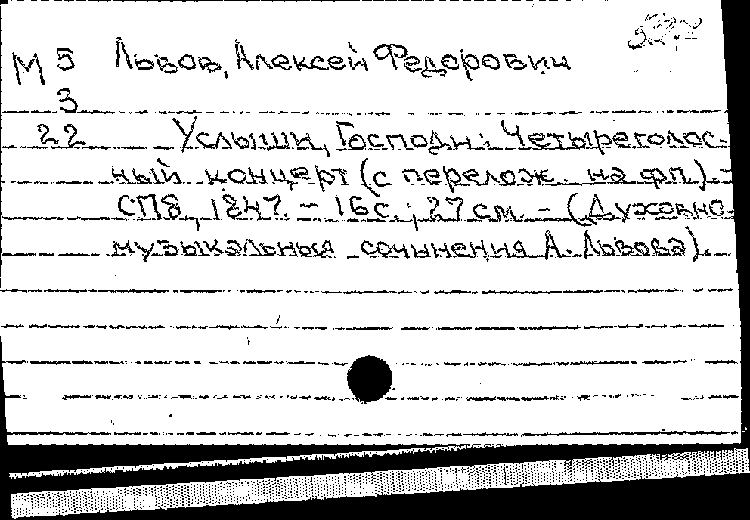 М 5 Львов, Алексей Федорович
3
22 Услыши, Господи: Четыреголос-
ный концерт (с перелож. на фп.) -
СПб, 1847. - 16 с.; 27 см. - (Духовно-
музыкальныя сочинения А. Львова).